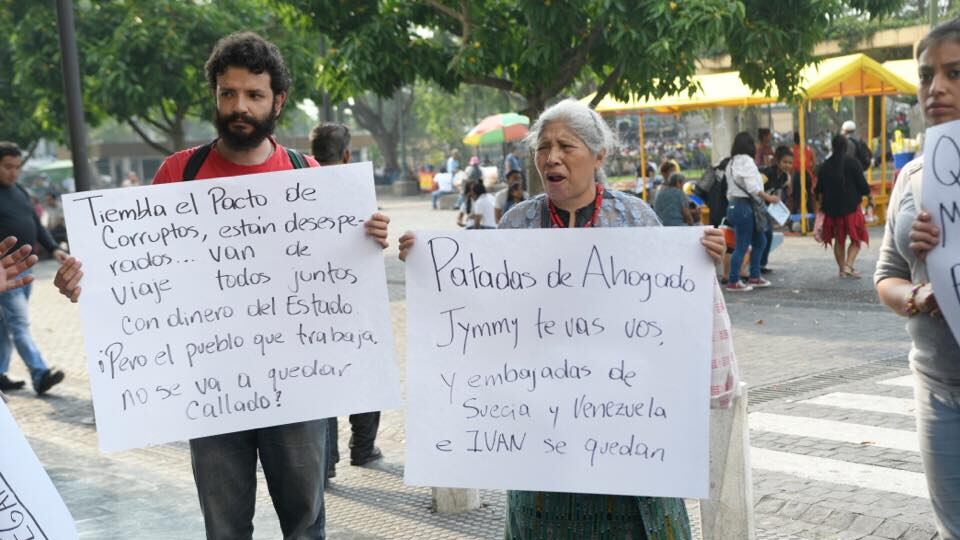 Tiembla el Pacto de
Corruptos, están desespe-
rados... van de
viaje todos juntos
con dinero del Estado.
¡Pero el pueblo que trabaja.
no se va a quedar
Callado?
Patadas de Ahogado
Jymmy te vas vos,
y embajadas de
Suecia y Venezuela
e IVAN se quedan